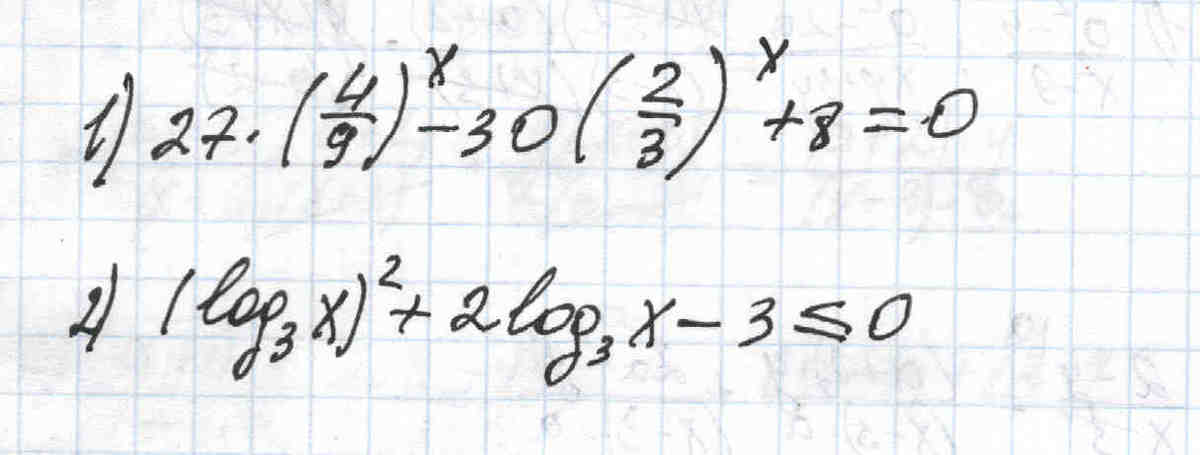 1) 27·(4/9)^x − 30(2/3)^x + 8 = 0
2) (log₃x)² + 2log₃x − 3 ≤ 0